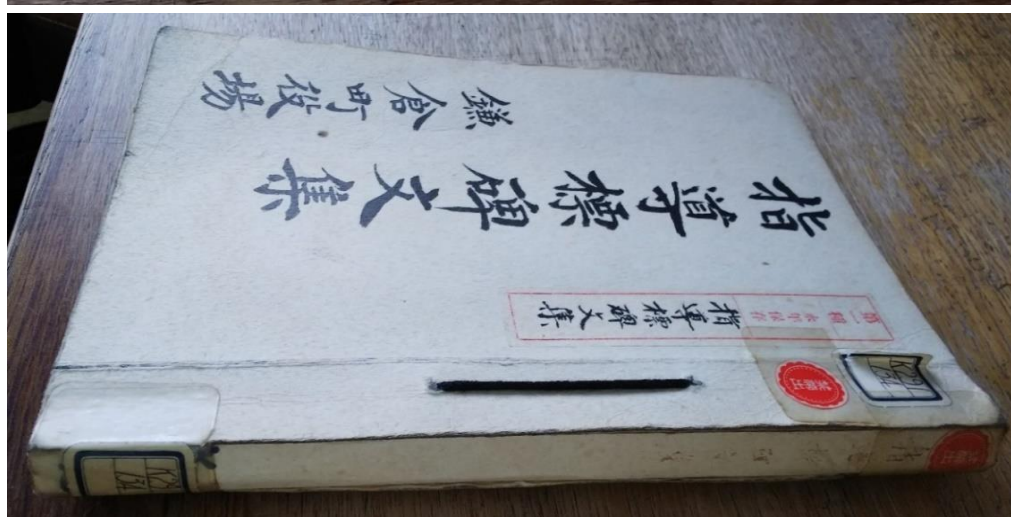 指導標碑文集
鎌倉町役場
第一種 永年保存
指導標碑文集
禁帯出
K291
指
禁帯出